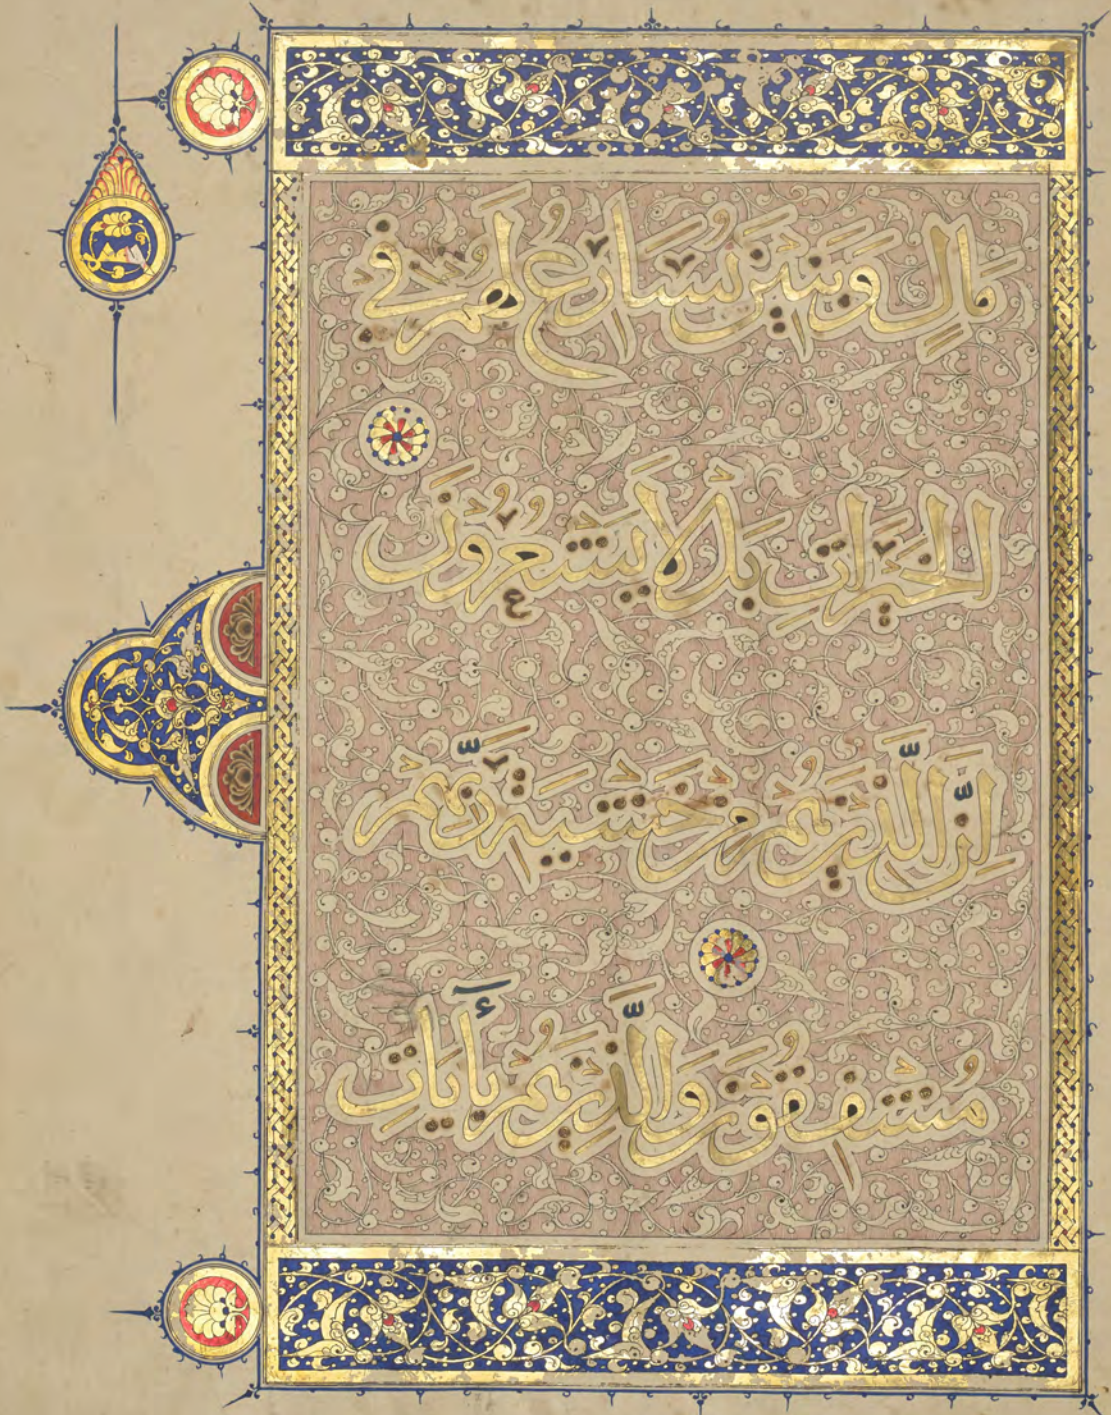 مَالٍ وَبَنِينَ نُسَارِعُ لَهُمْ فِي
الْخَيْرَاتِ بَلْ لَا يَشْعُرُونَ
إِنَّ الَّذِينَ هُمْ مِنْ خَشْيَةِ رَبِّهِمْ
مُشْفِقُونَ وَالَّذِينَ هُمْ بِأَيَاتِ